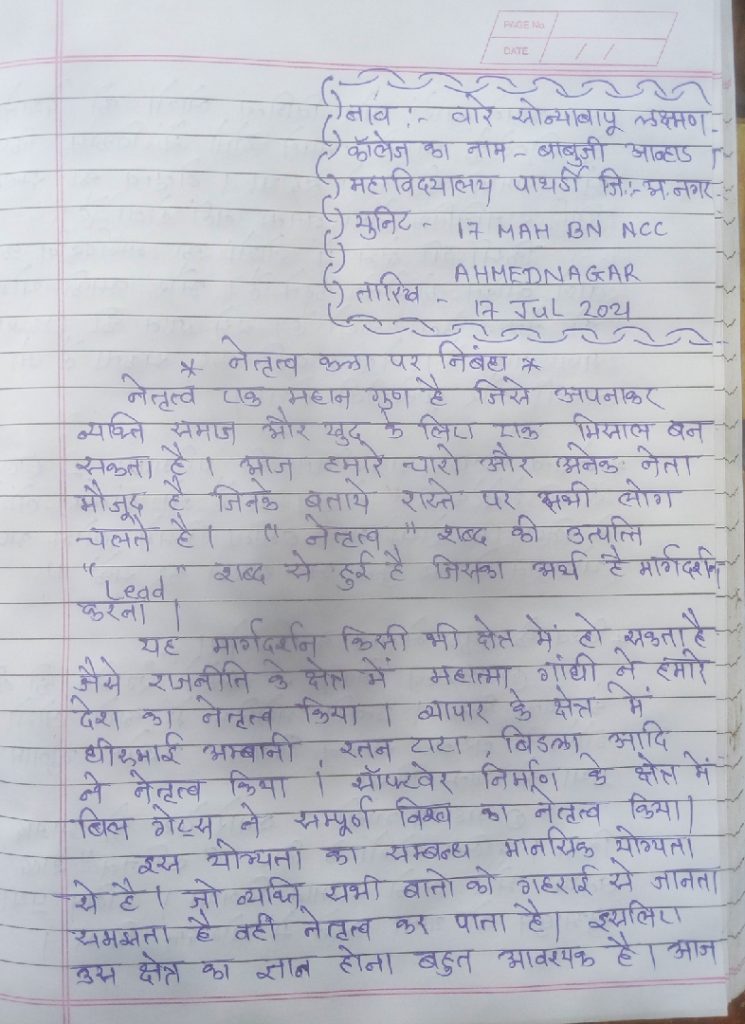 PAGE No.
DATE / /
नाव :- वारे सोन्याबापू लक्ष्मण -
कॉलेज का नाम - बाबुजी आव्हाड
महाविदयालय पाथर्डी जि:- अ.नगर.
युनिट - 17 MAH BN NCC
AHMEDNAGAR
तारिख - 17 JUL 2021
* नेतृत्व कला पर निबंध *
नेतृत्व एक महान गुण है जिसे अपनाकर
व्यक्ति समाज और खुद के लिए एक मिसाल बन
सकता है । आज हमारे चारो और अनेक नेता
मौजूद है जिनके बताये रास्ते पर सभी लोग
चलते है । " नेतृत्व " शब्द की उत्पत्ति
" Lead " शब्द से हुई है जिसका अर्थ है मार्गदर्शन
करना ।
यह मार्गदर्शन किसी भी क्षेत्र में हो सकता है
जैसे राजनीति के क्षेत्र में महात्मा गांधी ने हमारे
देश का नेतृत्व किया । व्यापार के क्षेत्र में
धीरुभाई अम्बानी, रतन टाटा, बिडला आदि
ने नेतृत्व किया । सॉफ्टवेर निर्माण के क्षेत्र में
बिल गेट्स ने सम्पूर्ण विश्व का नेतृत्व किया।
इस योग्यता का सम्बन्ध मानसिक योग्यता
से है । जो व्यक्ति सभी बातो को गहराई से जानता
समझता है वही नेतृत्व कर पाता है। इसलिए
उस क्षेत्र का ज्ञान होना बहुत आवश्यक है । आज